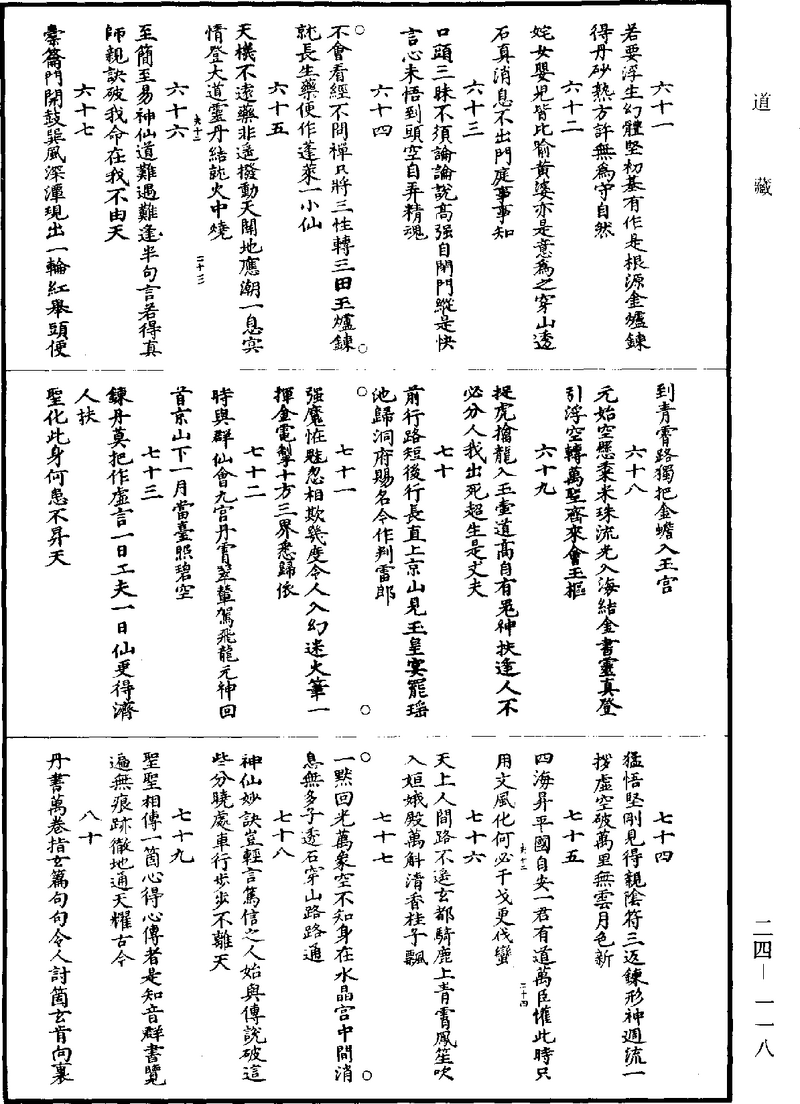 道藏
六十一
若要浮生幻體堅初基有作是根源金爐鍊
得丹砂熟方許無為守自然
六十二
姹女嬰兒皆比喻黃婆亦是意為之穿山透
石真消息不出門庭事事知
六十三
口頭三昧不須論論說高强自鬧門縱是快
言心未悟到頭空自弄精魂
六十四
不會看經不問禪只將三性轉三田玉爐鍊
就長生藥便作蓬萊一小仙
六十五
天機不遠藥非遥撥動天關地應潮一息寅
情登大道靈丹結就火中燒
六十六
至簡至易神仙道難遇難逢半句言若得真
師親訣破我命在我不由天
六十七
橐籥門開鼓巽風深潭現出一輪紅舉頭便
到青霄路獨把金蟾入玉宮
六十八
元始空懸黍米珠流光入海結金書靈真登
引浮空轉萬聖齊來會玉樞
六十九
捉虎擒龍入玉壺道高自有鬼神扶逢人不
必分人我出死超生是丈夫
七十
前行路短後行長直上京山見玉皇宴罷瑶
池歸洞府賜名令作判雷郎
七十一
强魔恠魅忽相欺幾度令人入幻迷火筆一
揮金電掣十方三界悉歸依
七十二
時與群仙會九宮丹霄翠輦駕飛龍元神回
首京山下一月當臺照碧空
七十三
鍊丹莫把作虛言一日工夫一日仙更得濟
人扶
聖化此身何患不昇天
七十四
猛悟堅剛見得親陰符三返鍊形神週流一
拶虛空破萬里無雲月色新
七十五
四海昇平國自安一君有道萬臣懽此時只
用文風化何必干戈更伐蠻
七十六
天上人間路不遥玄都騎鹿上青霄鳳笙吹
入姮娥殿萬斛清香桂子飄
七十七
一點回光萬象空不知身在水晶宮中間消
息無多子透石穿山路路通
七十八
神仙妙訣豈輕言篤信之人始與傳說破這
些分曉處車行步步不離天
七十九
聖聖相傳一箇心得心傳者是知音群書覽
遍無痕跡徹地通天耀古今
八十
丹書萬卷指玄篇句句令人討箇玄肯向裏
二四—一一八